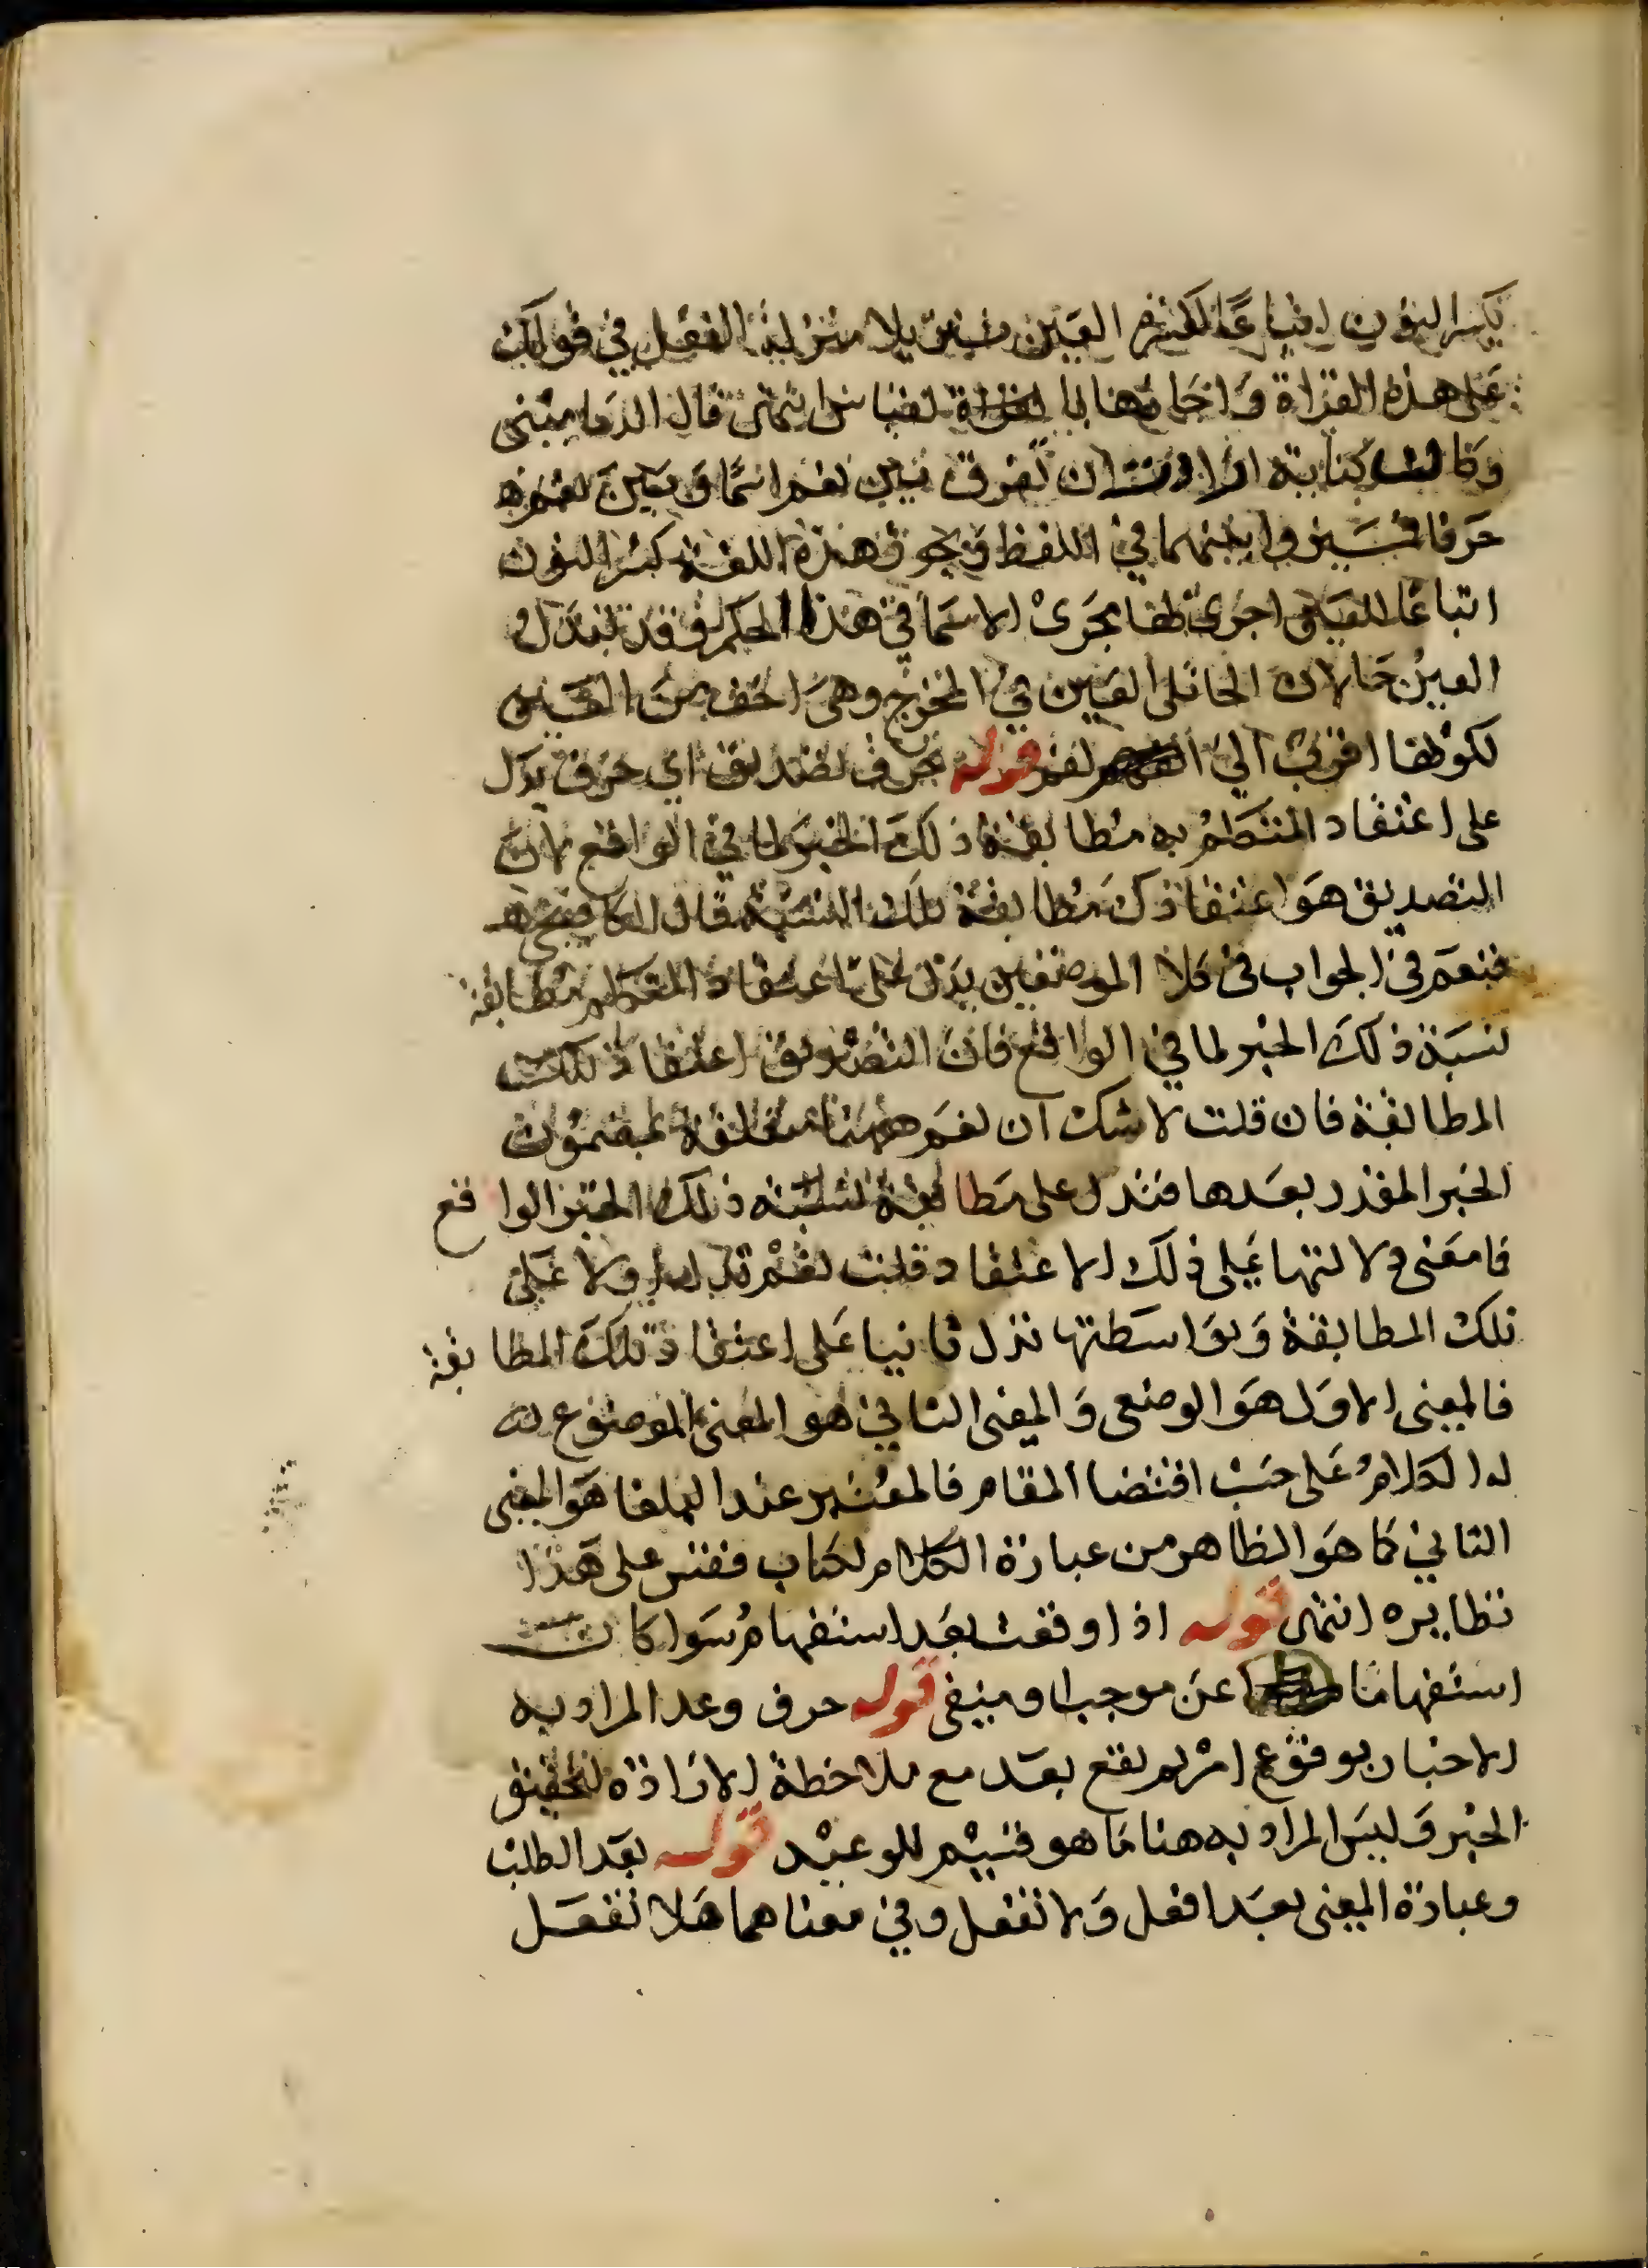 بكسر النون اتباعا لكسرة العين تنزيلا منزلة الفعل في قولك
على هذه القراة واجازها بالقراة لقياس انتهى قال الدماميني
وكانت كنابة ارادت ان تفرق بين نعم اسما وبين نعم
حرفا في اللفظ ويجوز هذه اللغة كسر النون
اتباعا للعين اجرى لها مجرى الاسما في هذا الحكم وقد تبدل
العين حا لان الحا تلى العين في المخرج وهي اخف من العين
لكونها اقرب الى الفم قوله حرف تصديق اي حرف يدل
على اعتقاد المتكلم به مطابقة ذلك الخبر لما في الواقع لان
التصديق هو اعتقاد مطابقة تلك النسبة قال الكافيجي
فنعم في الجواب في كلا الموضعين يدل على اعتقاد المتكلم مطابقة
نسبة ذلك الخبر لما في الواقع فان التصديق اعتقاد تلك
المطابقة فان قلت لا شك ان نعم ههنا متعلقة بمضمون
الخبر المقدر بعدها فتدل على مطابقة نسبة ذلك الخبر الواقع
فما معنى دلالتها على ذلك الاعتقاد قلت نعم تدل اولا على
تلك المطابقة وبواسطتها تدل ثانيا على اعتقاد تلك المطابقة
فالمعنى الاول هو الوضعى والمعنى الثاني هو المعنى الموضوع له
له الكلام على حسب اقتضا المقام فالمعتبر عند البلغا هو المعنى
الثاني كما هو الظاهر من عبارة الكلام لكتاب فقس على هذا
نظايره انتهى قوله اذا وقعت بعد استفهام سوا كانت
استفهاما عن موجب او منفى قوله حرف وعد المراد به
الاخبار بوقوع امر لم يقع بعد مع ملاحظة الارادة لتحقيق
الخبر وليس المراد به هنا ما هو قسيم للوعيد قوله بعد الطلب
وعبارة المغنى بعد افعل ولا تفعل وفي معناهما هلا تفعل